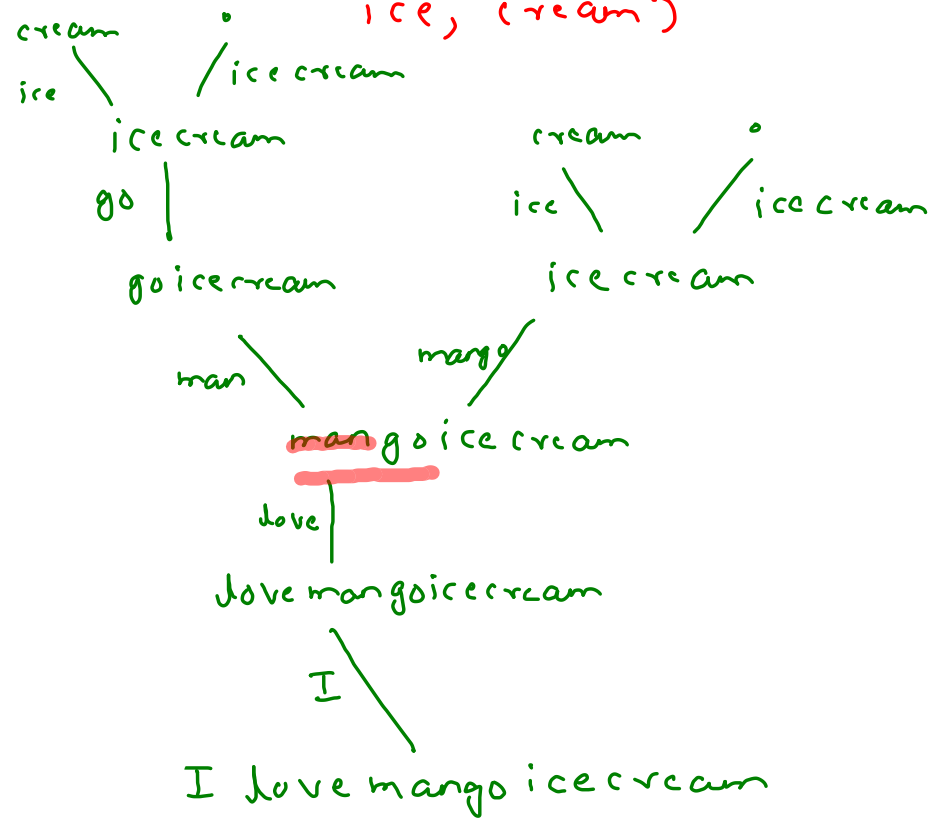 ice, cream")
cream .
ice icecream
icecream cream .
go ice icecream
goicecream icecream
man mango
mangoicecream
love
lovemangoicecream
I
I lovemangoicecream